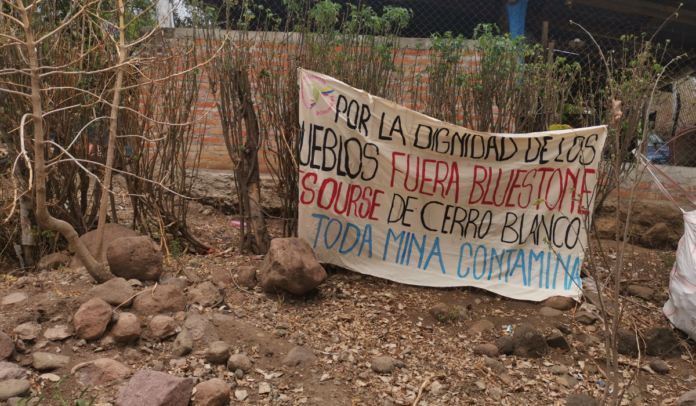 POR LA DIGNIDAD DE LOS
UEBLOS FUERA BLUESTONE
SOURSE DE CERRO BLANCO
TODA MINA CONTAMINA